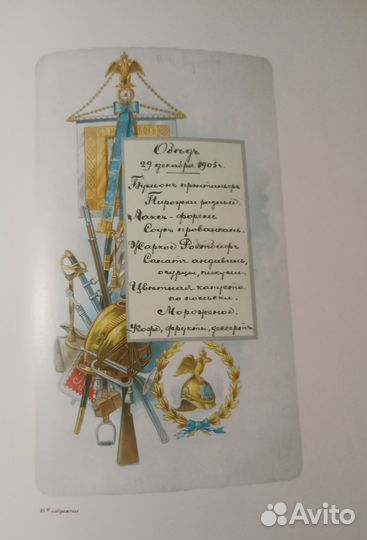 Обѣдъ
29 декабря 1905 г.
Бульонъ прентаньеръ
Пирожки разные.
Лаксъ-форели
Соусъ провансаль.
Жаркое Ростбифъ
Салатъ андивiи,
огурцы, пикули.
Цвѣтная капуста
по польски.
Мороженое.
Кофе, фрукты, десертъ
Avito